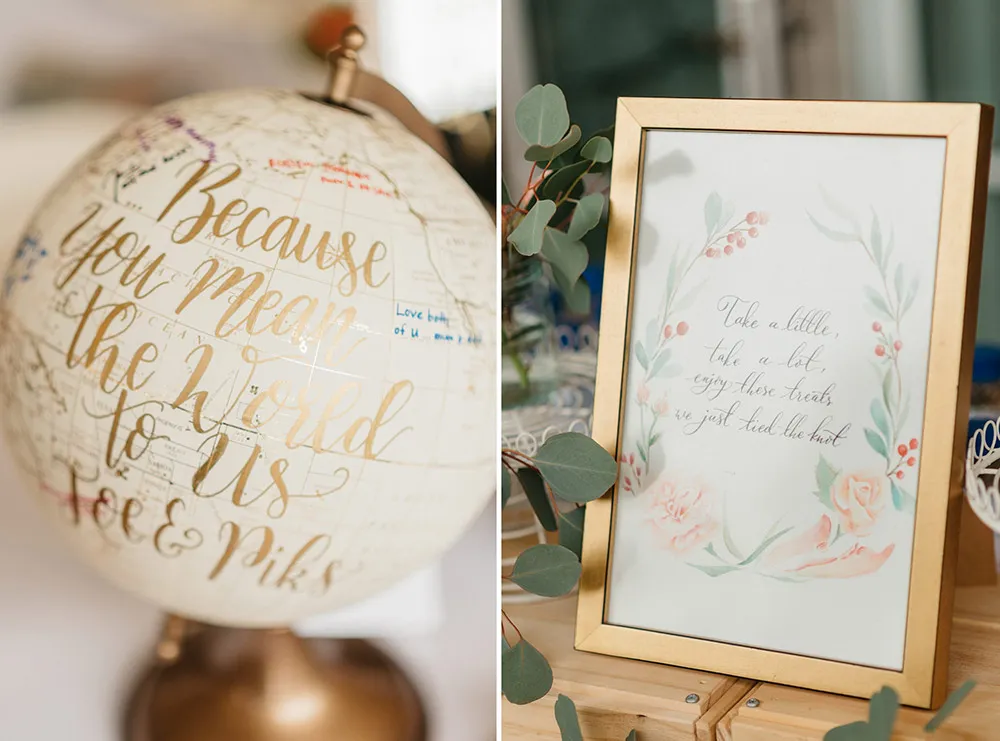 Because
You Mean
the World
to Us
Foe & Piks
Love both
of U
Take a little,
take a lot,
enjoy these treats
we just tied the knot